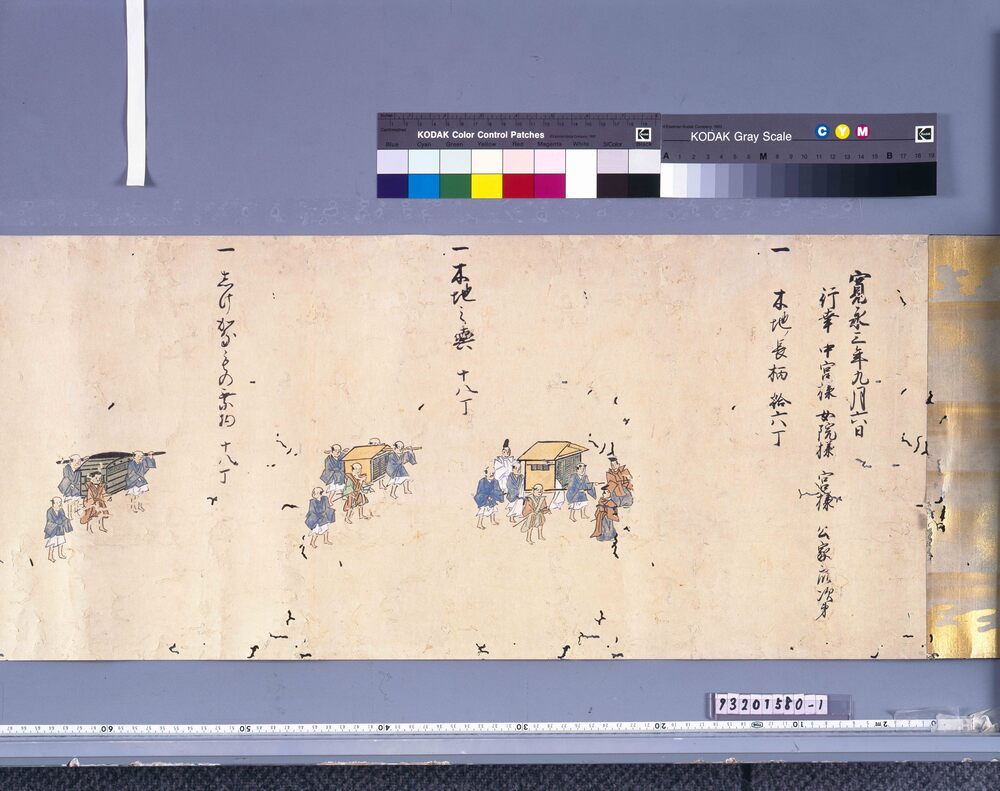 KODAK Color Control Patches
Blue Cyan Green Yellow Red Magenta White 3/Color Black
KODAK Gray Scale
C Y M
A 1 2 3 4 5 6 M 8 9 10 11 12 13 14 15 B 17 18 19
寛永三年九月六日
行幸 中宮様 女院様 宮様 公家 次第
一 木地ノ長柄 拾六丁
一 木地之輿 十八丁
一 乗物 十八丁
93201580-1
60 50 40 30 20 10